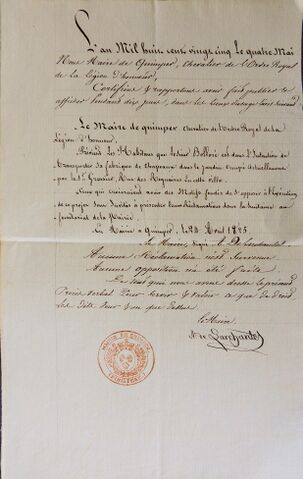 L'an Mil huit cent vingt cinq le quatre Mai
Nous Maire de Quimper, chevalier de l'Ordre Royal
de la légion d'honneur,
Certifions & rapportons avoir fait publier &
afficher pendant dix jours, dans les lieux d'usage l'avis suivant
Le Maire de quimper chevalier de l'ordre Royal de la
Légion d'honneur.
Prévient les habitans que le sieur Bolloré est dans l'intention de
transporter sa fabrique de chapeaux dans le jardin occupé actuellement
par le Sr. Rue des en cette ville.
Ceux qui croiraient avoir des Motifs fondés de s'opposer à l'exécution
de ce projet sont invités à présenter leurs Réclamations dans la huitaine au
Secrétariat de la Mairie.
En Mairie à Quimper, le 23 Avril 1825.
Le Maire, Signé
Aucune Réclamation n'est survenue
Aucune opposition n'a été faite.
En foi de quoi nous avons dressé le présent
Procès Verbal pour servir & valoir ce que de droit
Les dits jour & an que dessus.
Le Maire